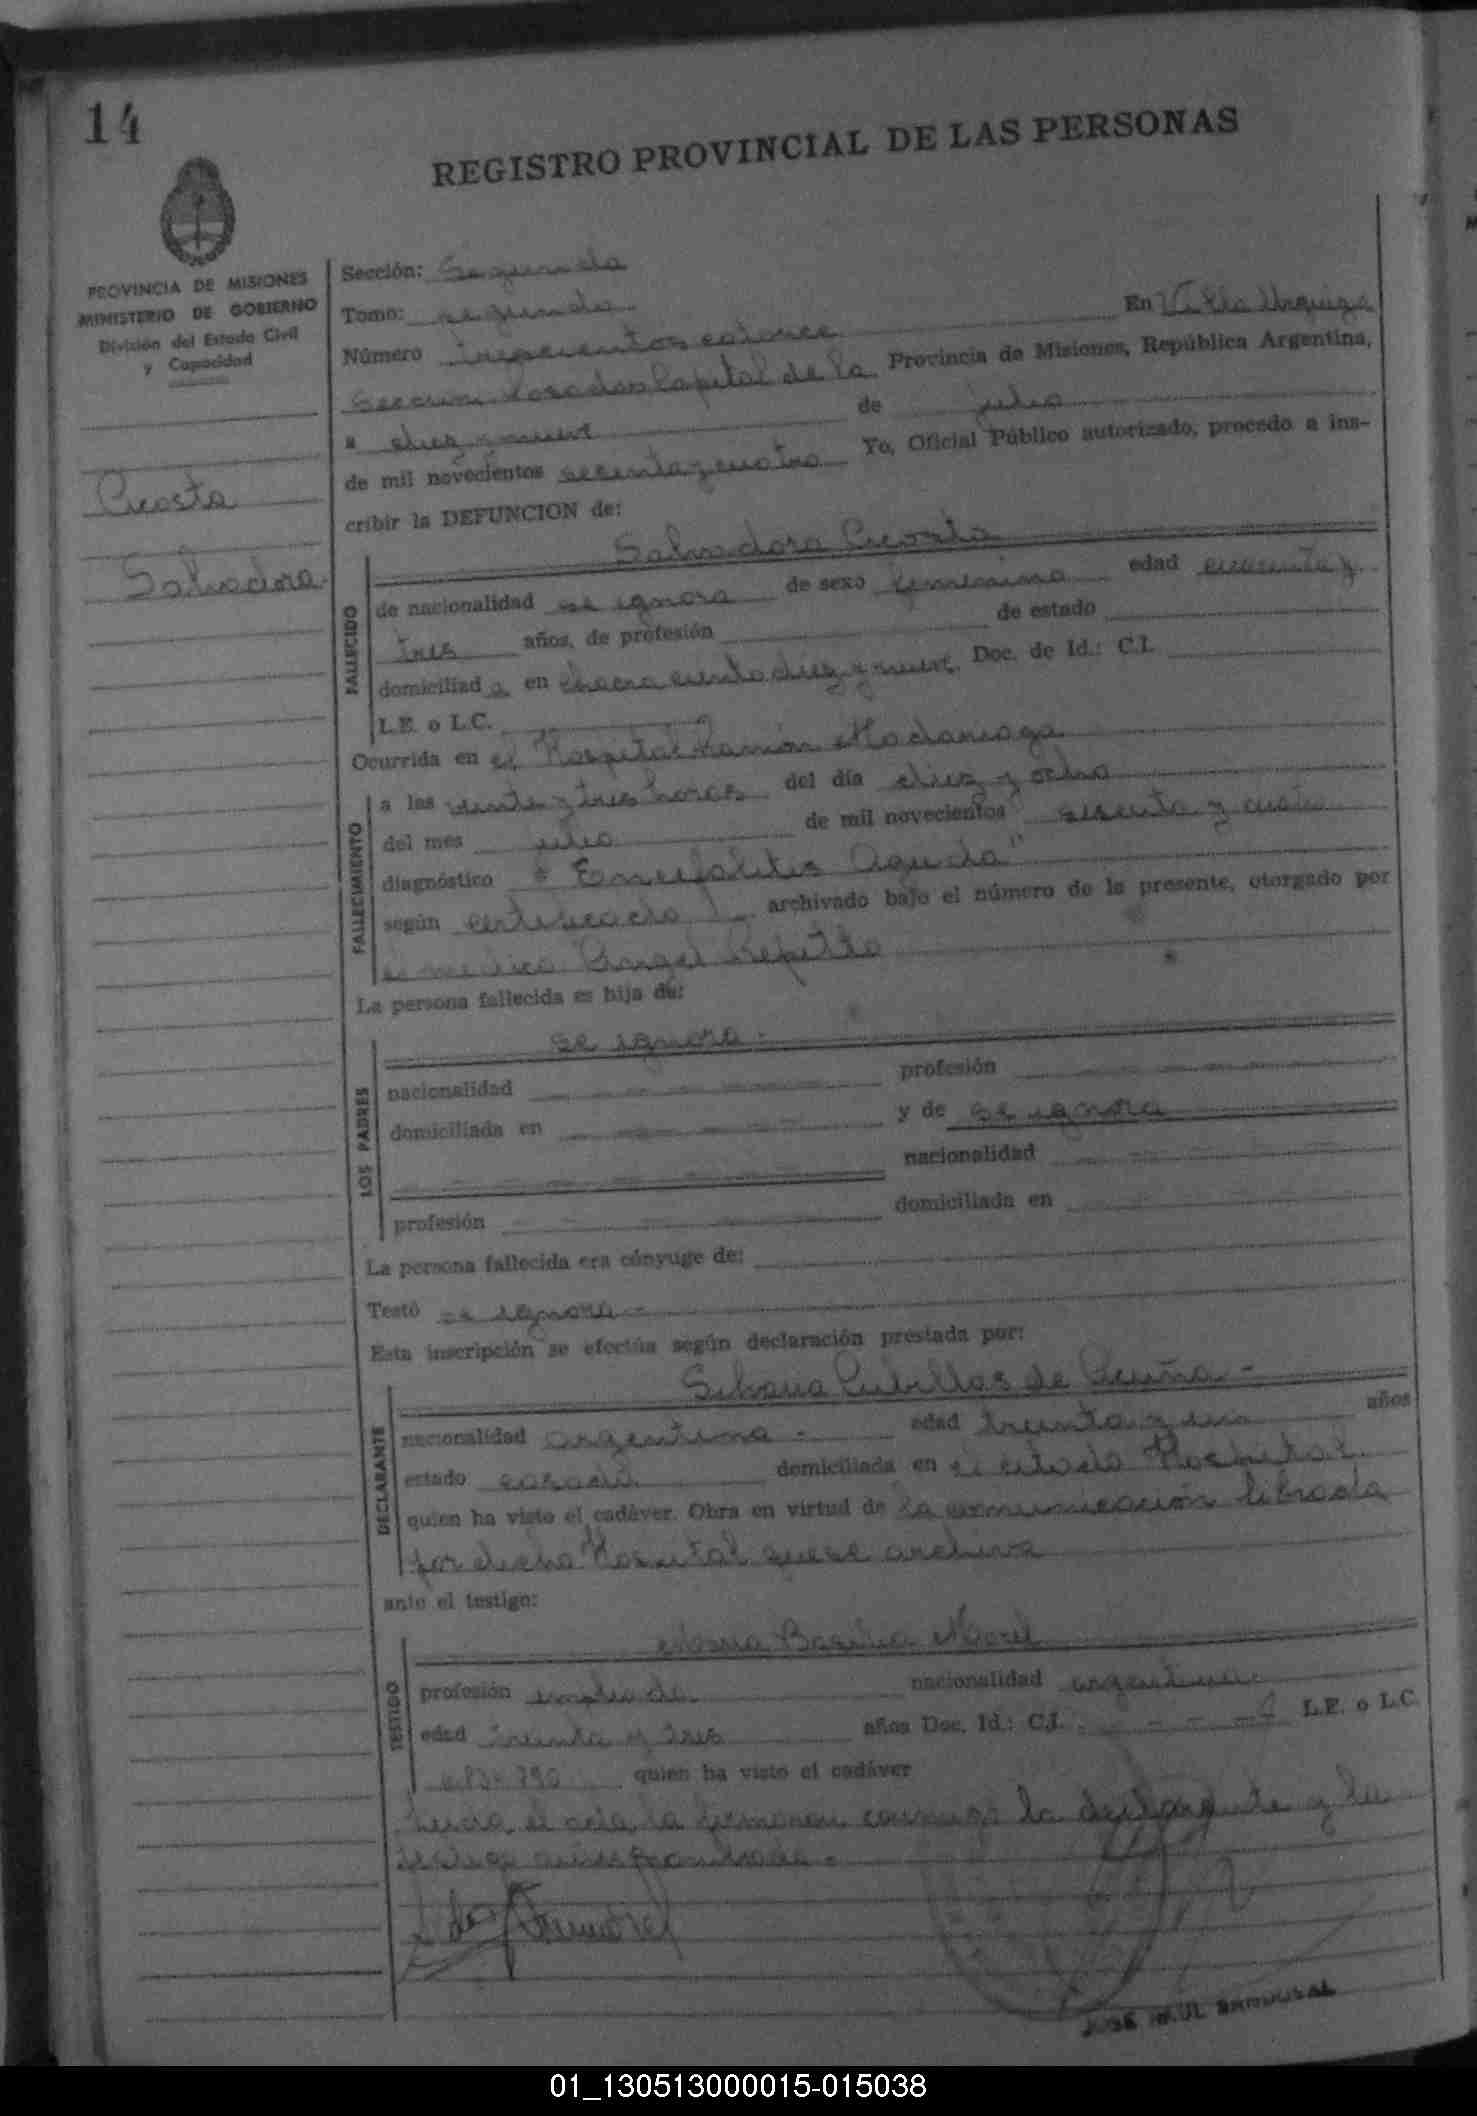 14
REGISTRO PROVINCIAL DE LAS PERSONAS
PROVINCIA DE MISIONES
MINISTERIO DE GOBIERNO
División del Estado Civil
y Capacidad
Acosta
Salvadora
Sección: Segunda
Tomo: segundo
Número trescientos catorce En Villa Urquiza
Sección Posadas Capital de la Provincia de Misiones, República Argentina,
a diez y nueve de julio
de mil novecientos sesenta y cuatro Yo, Oficial Público autorizado, procedo a ins-
cribir la DEFUNCION de:
Salvadora Acosta
FALLECIDO
de nacionalidad se ignora de sexo femenino edad cincuenta y
tres años, de profesión de estado
domiciliada en chacra ciento diez y nueve Doc. de Id.: C.I.
L.E. o L.C.
Ocurrida en el Hospital Ramón Madariaga
FALLECIMIENTO
a las veinte y tres horas del día diez y ocho
del mes julio de mil novecientos sesenta y cuatro
diagnóstico "Encefalitis Aguda"
según certificado archivado bajo el número de la presente, otorgado por
el médico Angel Repetto
La persona fallecida es hija de:
se ignora.-
LOS PADRES
nacionalidad profesión
domiciliada en y de se ignora
nacionalidad
profesión domiciliada en
La persona fallecida era cónyuge de:
Testó se ignora -
Esta inscripción se efectúa según declaración prestada por:
Silvana Cubillas de Acuña -
DECLARANTE
nacionalidad argentina - edad treinta y seis años
estado casada domiciliada en el citado Hospital
quien ha visto el cadáver. Obra en virtud de la comunicación librada
por dicho Hospital que se archiva
ante el testigo:
María Basilia Morel
TESTIGO
profesión empleada nacionalidad argentina
edad treinta y tres años Doc. Id.: C.I. - - - L.E. o L.C.
790 quien ha visto el cadáver
el acta la firmaron conmigo la declarante y la
testigo
JOSE RAUL SANDOVAL
01_130513000015-015038